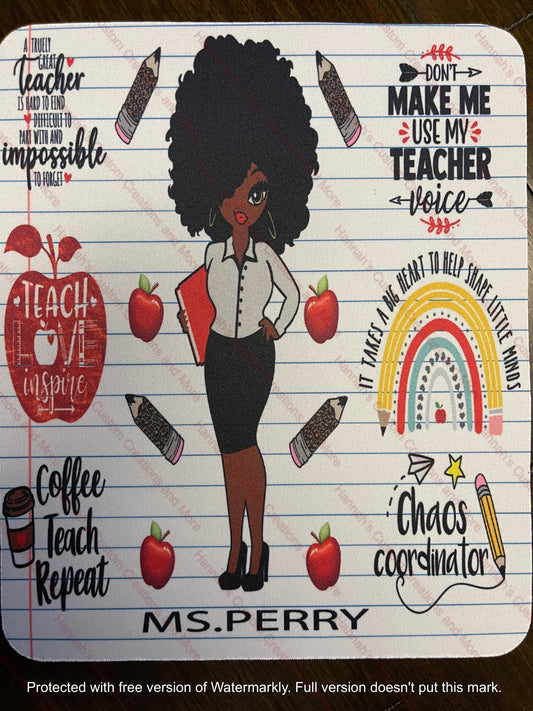 A TRUELY
GREAT
teacher
IS HARD TO FIND
DIFFICULT TO
PART WITH AND
impossible
TO FORGET
DON'T
MAKE ME
USE MY
TEACHER
voice
TEACH
LOVE
inspire
IT TAKES A BIG HEART TO HELP SHAPE LITTLE MINDS
Coffee
Teach
Repeat
Chaos
coordinator
MS.PERRY
Hannah's Custom Creations and More
Protected with free version of Watermarkly. Full version doesn't put this mark.